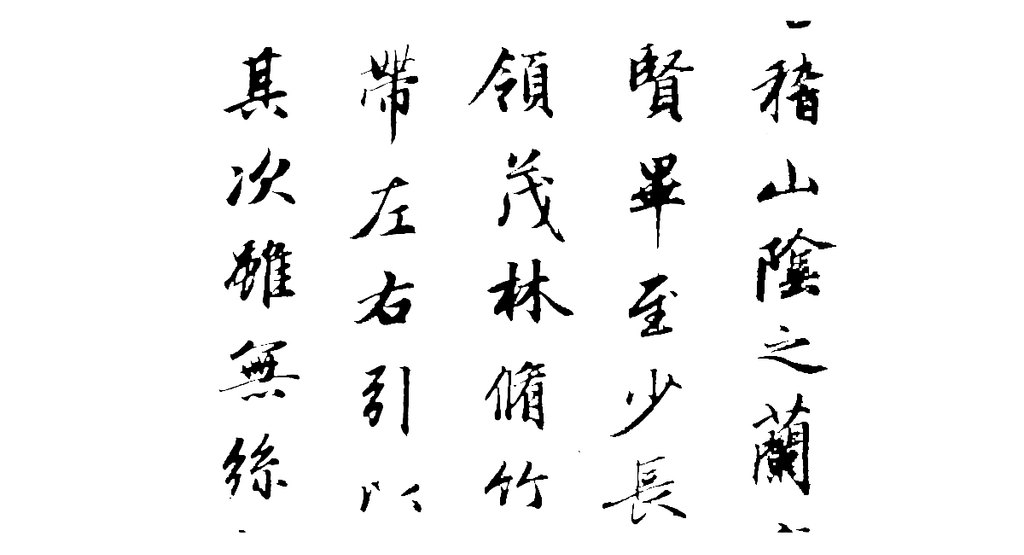 稽山陰之蘭
賢畢至少長
領茂林脩竹
帶左右引以
其次雖無絲